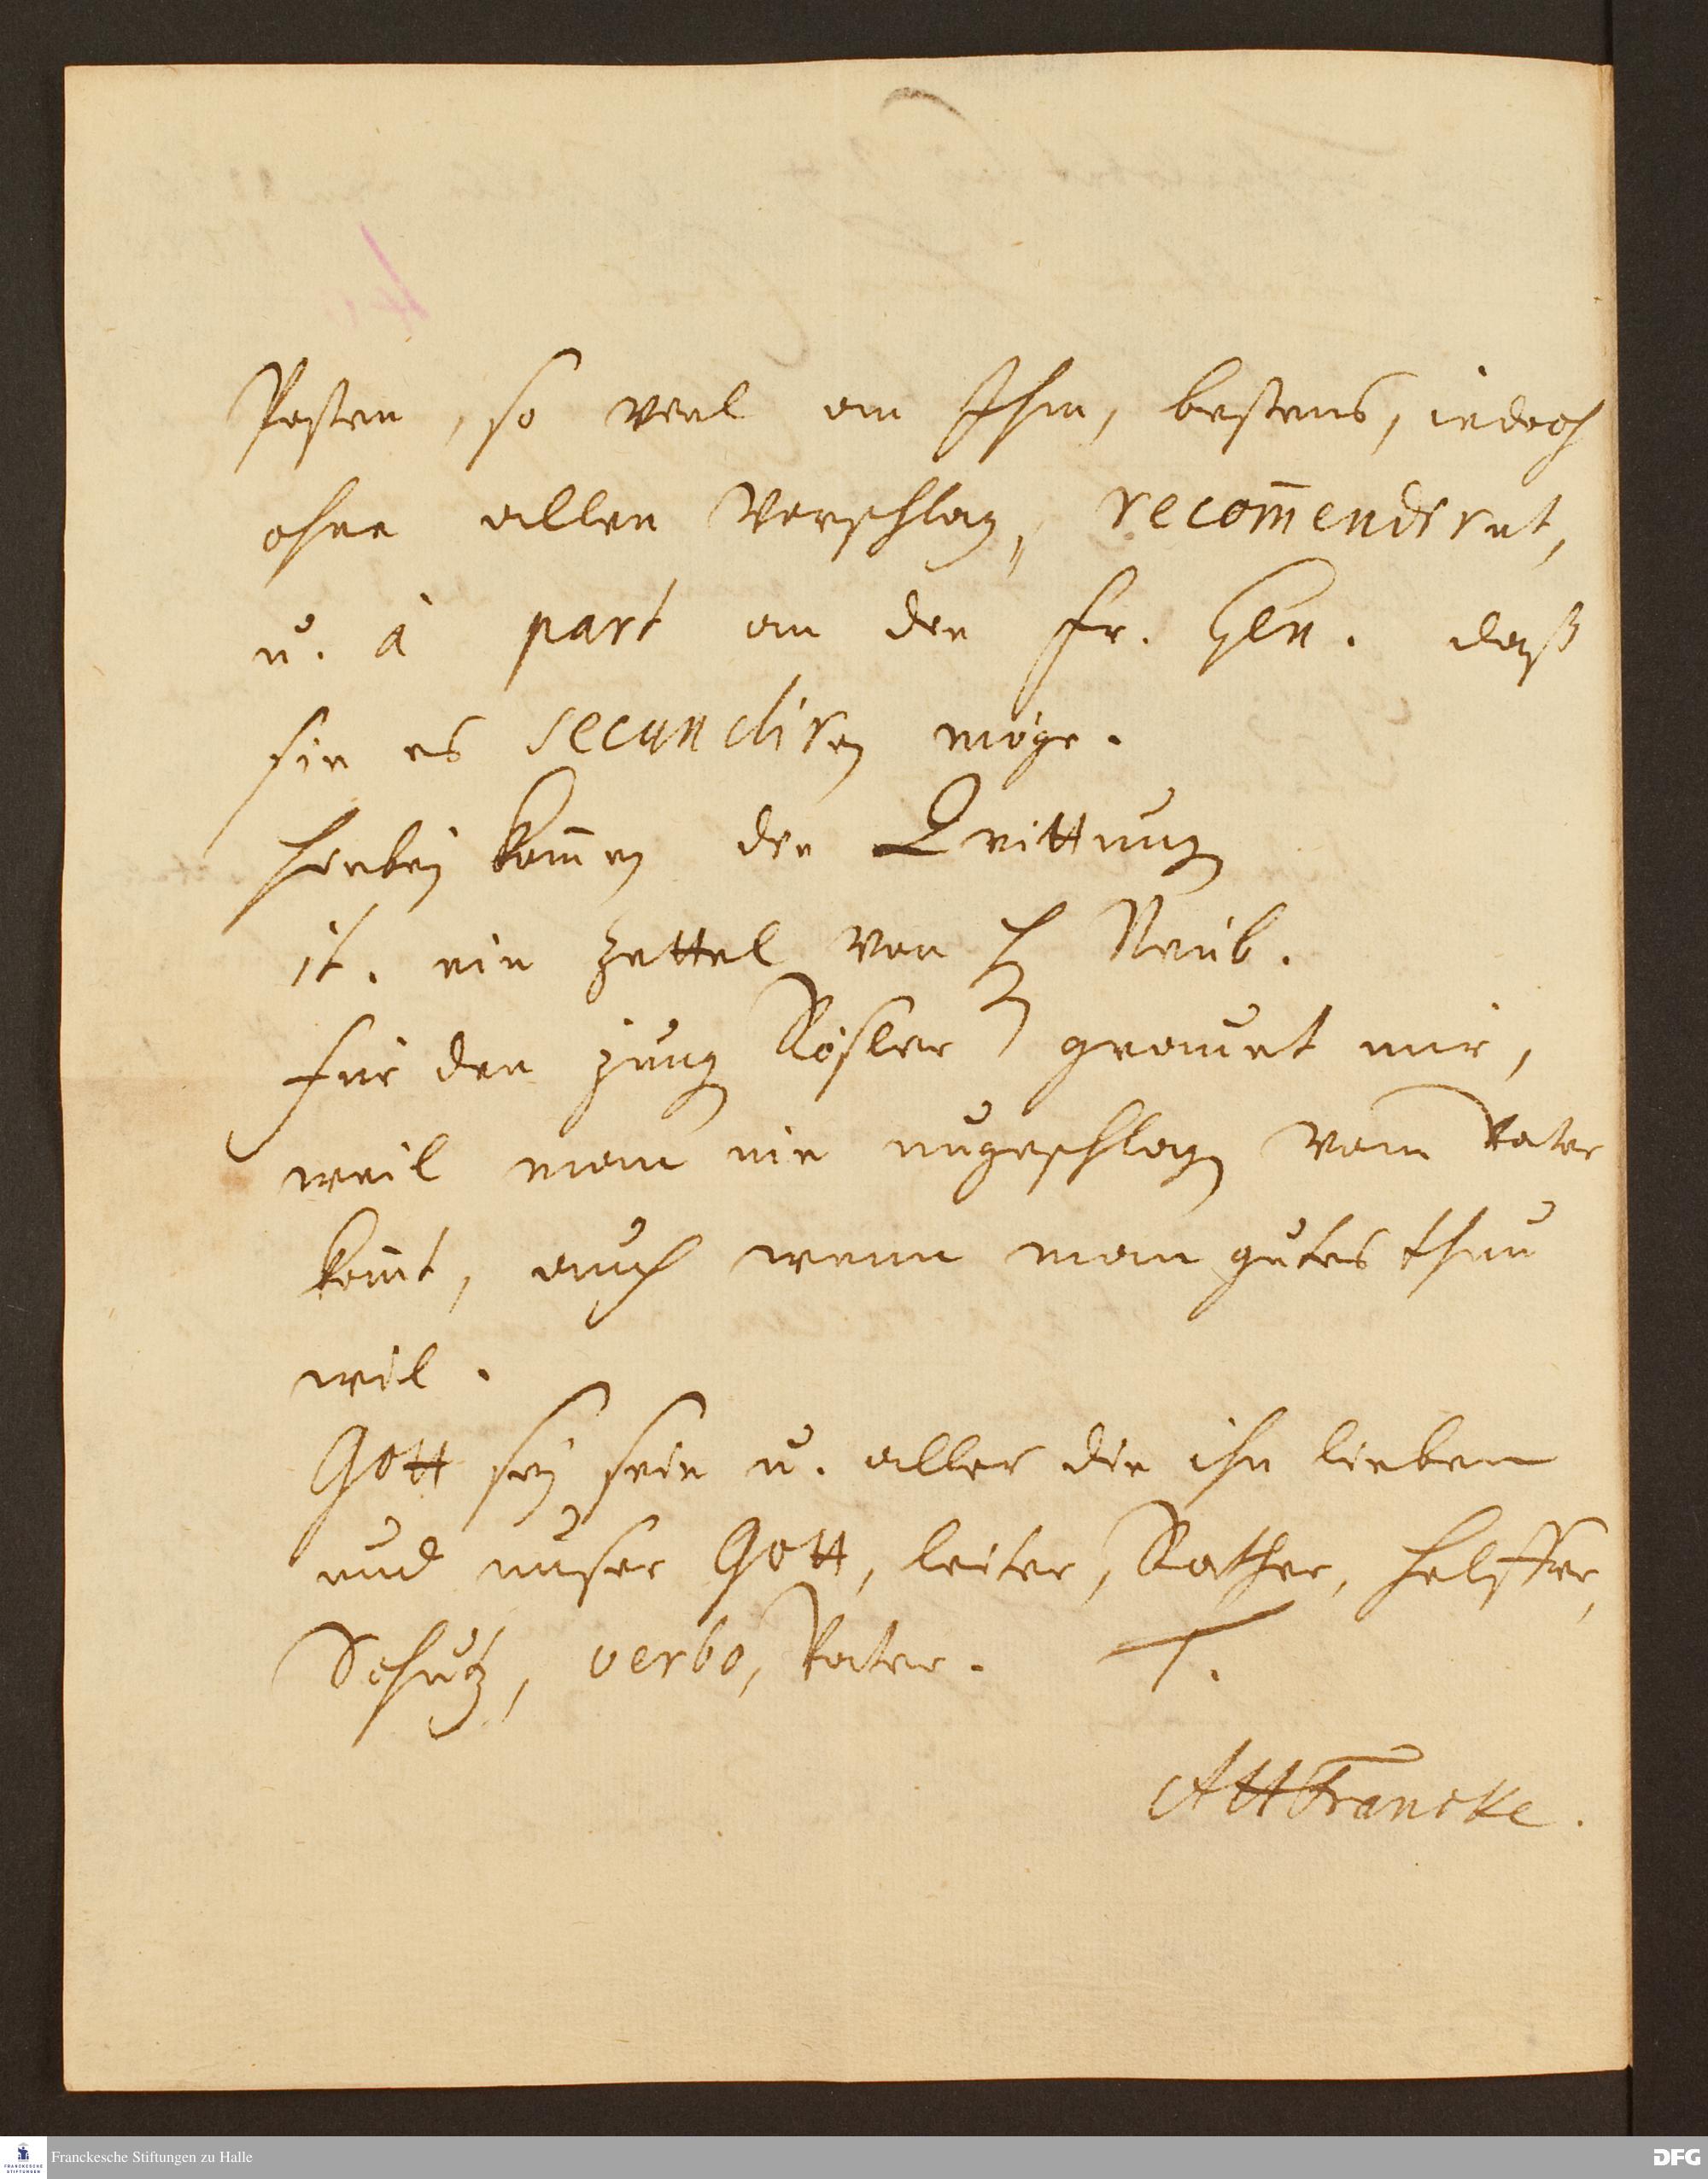 Posten, so viel an Ihm, bestens, iedoch
ohne allen Vorschlag, recom̄endiret,
u. à part an die Fr. Gen. daß
sie es secundiren möge.
Hiebey kom̄en die Qvittung
it. ein Zettel von H. Neub.
Für den jung Rösler grauet mir,
weil man nie ungeschlagen vom Vater
kom̄t, auch wenn man gutes thun
wil.
Gott sey sein u. aller die ihn lieben
und unser Gott, Leiter, Rather, Helffer,
Schutz, verbo, Vater. T.
AHFrancke.
Franckesche Stiftungen zu Halle
DFG